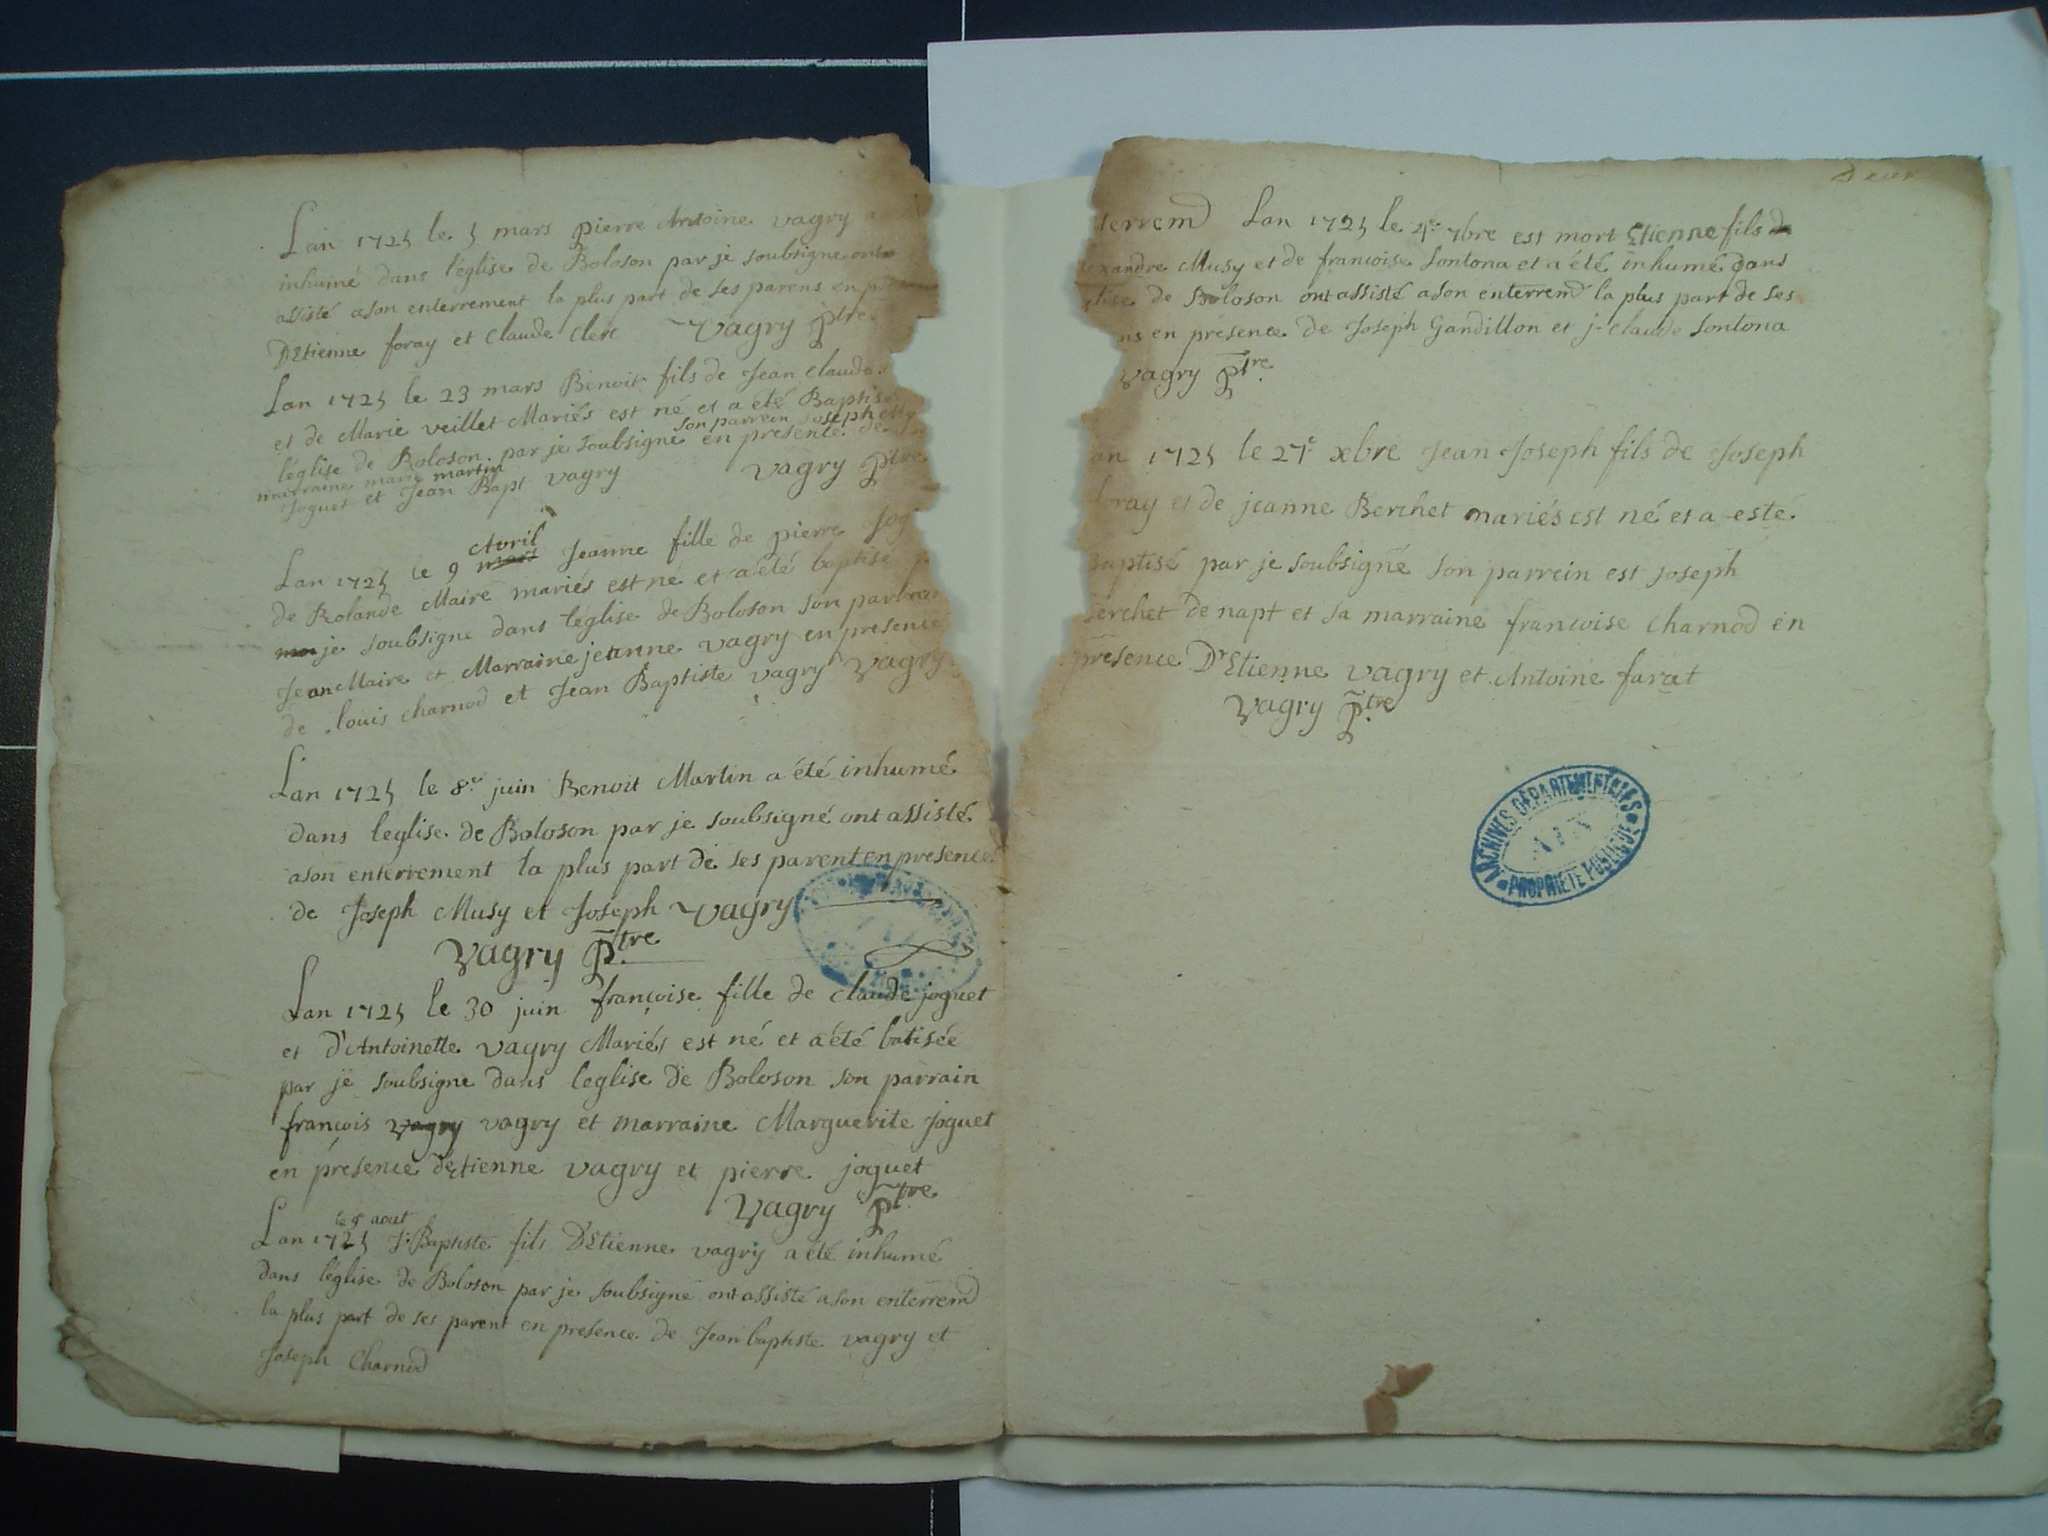 Lan 1725 le 5 mars pierre Antoine vagry a
inhumé dans l'église de Boloson par je soubsigne ont
assisté a son enterrement la plus part de ses parens en
D'Etienne foray et claude clerc Vagry Ptre
Lan 1725 le 23 mars Benoit fils de Jean claude
et de Marie veillet Mariés est né et a été Baptisé
son parrein Joseph
léglise de Boloson par je soubsigne en presence de
marraine marie martin
Joguet et Jean Bapt vagry Vagry Ptre
Avril
Lan 1725 le 9 mars Jeanne fille de pierre Jog
de Rolande Maire mariés est né et a été baptisé p
moi je soubsigne dans l'église de Boloson son parrein
Jean Maire et Marraine jeanne vagry en presence
de louis charnod et Jean Baptiste vagry Vagry
Lan 1725 le 8e juin Benoit Martin a été inhumé
dans leglise de Boloson par je soubsigné ont assisté
a son enterrement la plus part de ses parent en presence
de Joseph Musy et Joseph vagry
Vagry Ptre
Lan 1725 le 30 juin françoise fille de claude joguet
et d'Antoinette vagry Mariés est né et a été batisée
par je soubsigne dans leglise de Boloson son parrain
françois vagry vagry et marraine Marguerite Joguet
en présence d'Etienne vagry et pierre joguet
Vagry Ptre
aout
Lan 1725 J Baptiste fils D'Etienne vagry a été inhumé
dans léglise de Boloson par je soubsigné ont assisté a son enterremd
la plus part de ses parent en presence de Jean baptiste vagry et
Joseph Charnod
Deux
terremd Lan 1725 le 4e 7bre est mort Etienne fils da
exandre Musy et de francoise Sontona et a été inhumé dans
glise de Boloson ont assisté a son enterremd la plus part de ses
ns en présence de Joseph Gandillon et j-claude Sontona
Vagry Ptre
an 1725 le 27e xbre Jean Joseph fils de Joseph
foray et de jeanne Berchet mariés est né et a esté
Baptisé par je soubsigné son parrein est joseph
Berchet de napt et sa marraine francoise charnod en
présence D'Etienne vagry et Antoine farat
Vagry Ptre
ARCHIVES DÉPARTEMENTALES
AIN
PROPRIÉTÉ PUBLIQUE